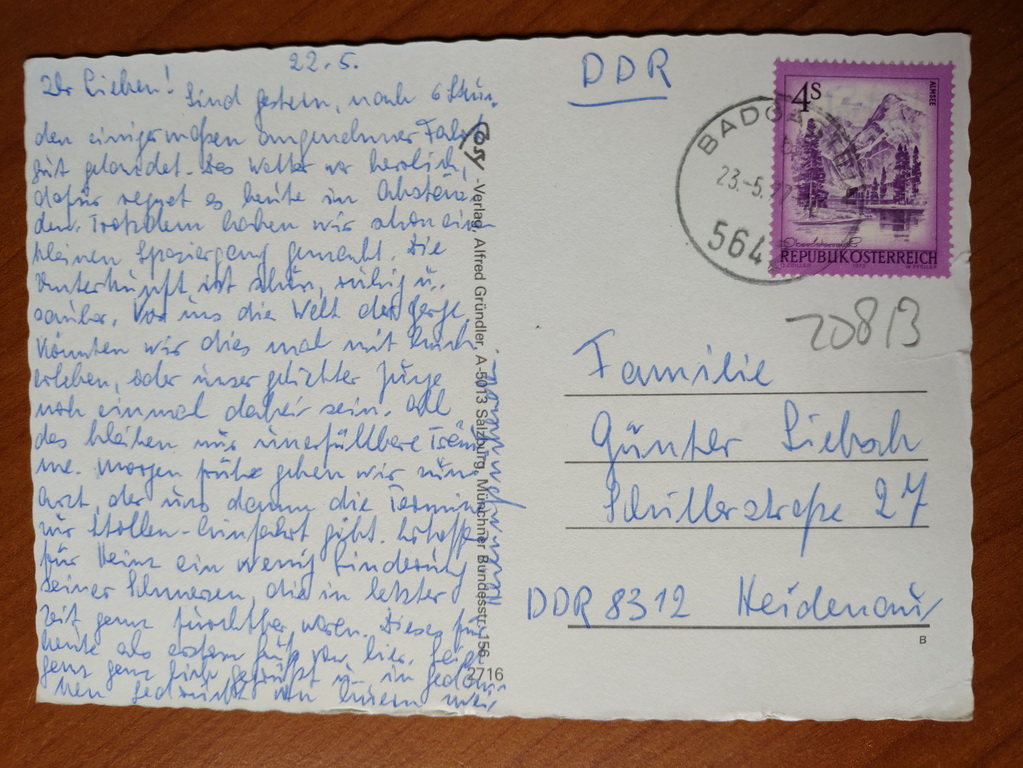 22.5.
Ihr Lieben! Sind gestern, nach 6 Stun-
den einigermaßen angenehmer Fahrt
gut gelandet. Das Wetter war herrlich,
dafür regnet es heute in Abstän-
den. Trotzdem haben wir schon ein
kleinen Spaziergang gemacht. Die
Unterkunft ist schön, ruhig u.
sauber. Vor uns die Welt der Berge.
Könnten wir dies mal mit Euch
erleben, oder unser geliebter Junge
noch einmal dabei sein. All
das bleiben nur unerfüllbare Träu-
me. Morgen frühe gehen wir zum
Arzt, der uns dann die Termine
zur Stollen-Einfahrt gibt. Erhoffe
für Heinz ein wenig Linderung
seiner Schmerzen, die in letzter
Zeit ganz furchtbar waren. Dieses für
heute als ersten Gruß von hier. Seid
ganz ganz lieb gegrüßt u. in Gedan-
ken gedrückt von Euern
Cosy -Verlag, Alfred Gründler, A-5013 Salzburg, Münchner Bundesstr. 156
2716
DDR
BADGASTEIN
23.-5.
564
4S
ALMSEE
Oberösterreich
REPUBLIK ÖSTERREICH
20813
Familie
Günter Liebsch
Schillerstraße 27
DDR 8312 Heidenau
B